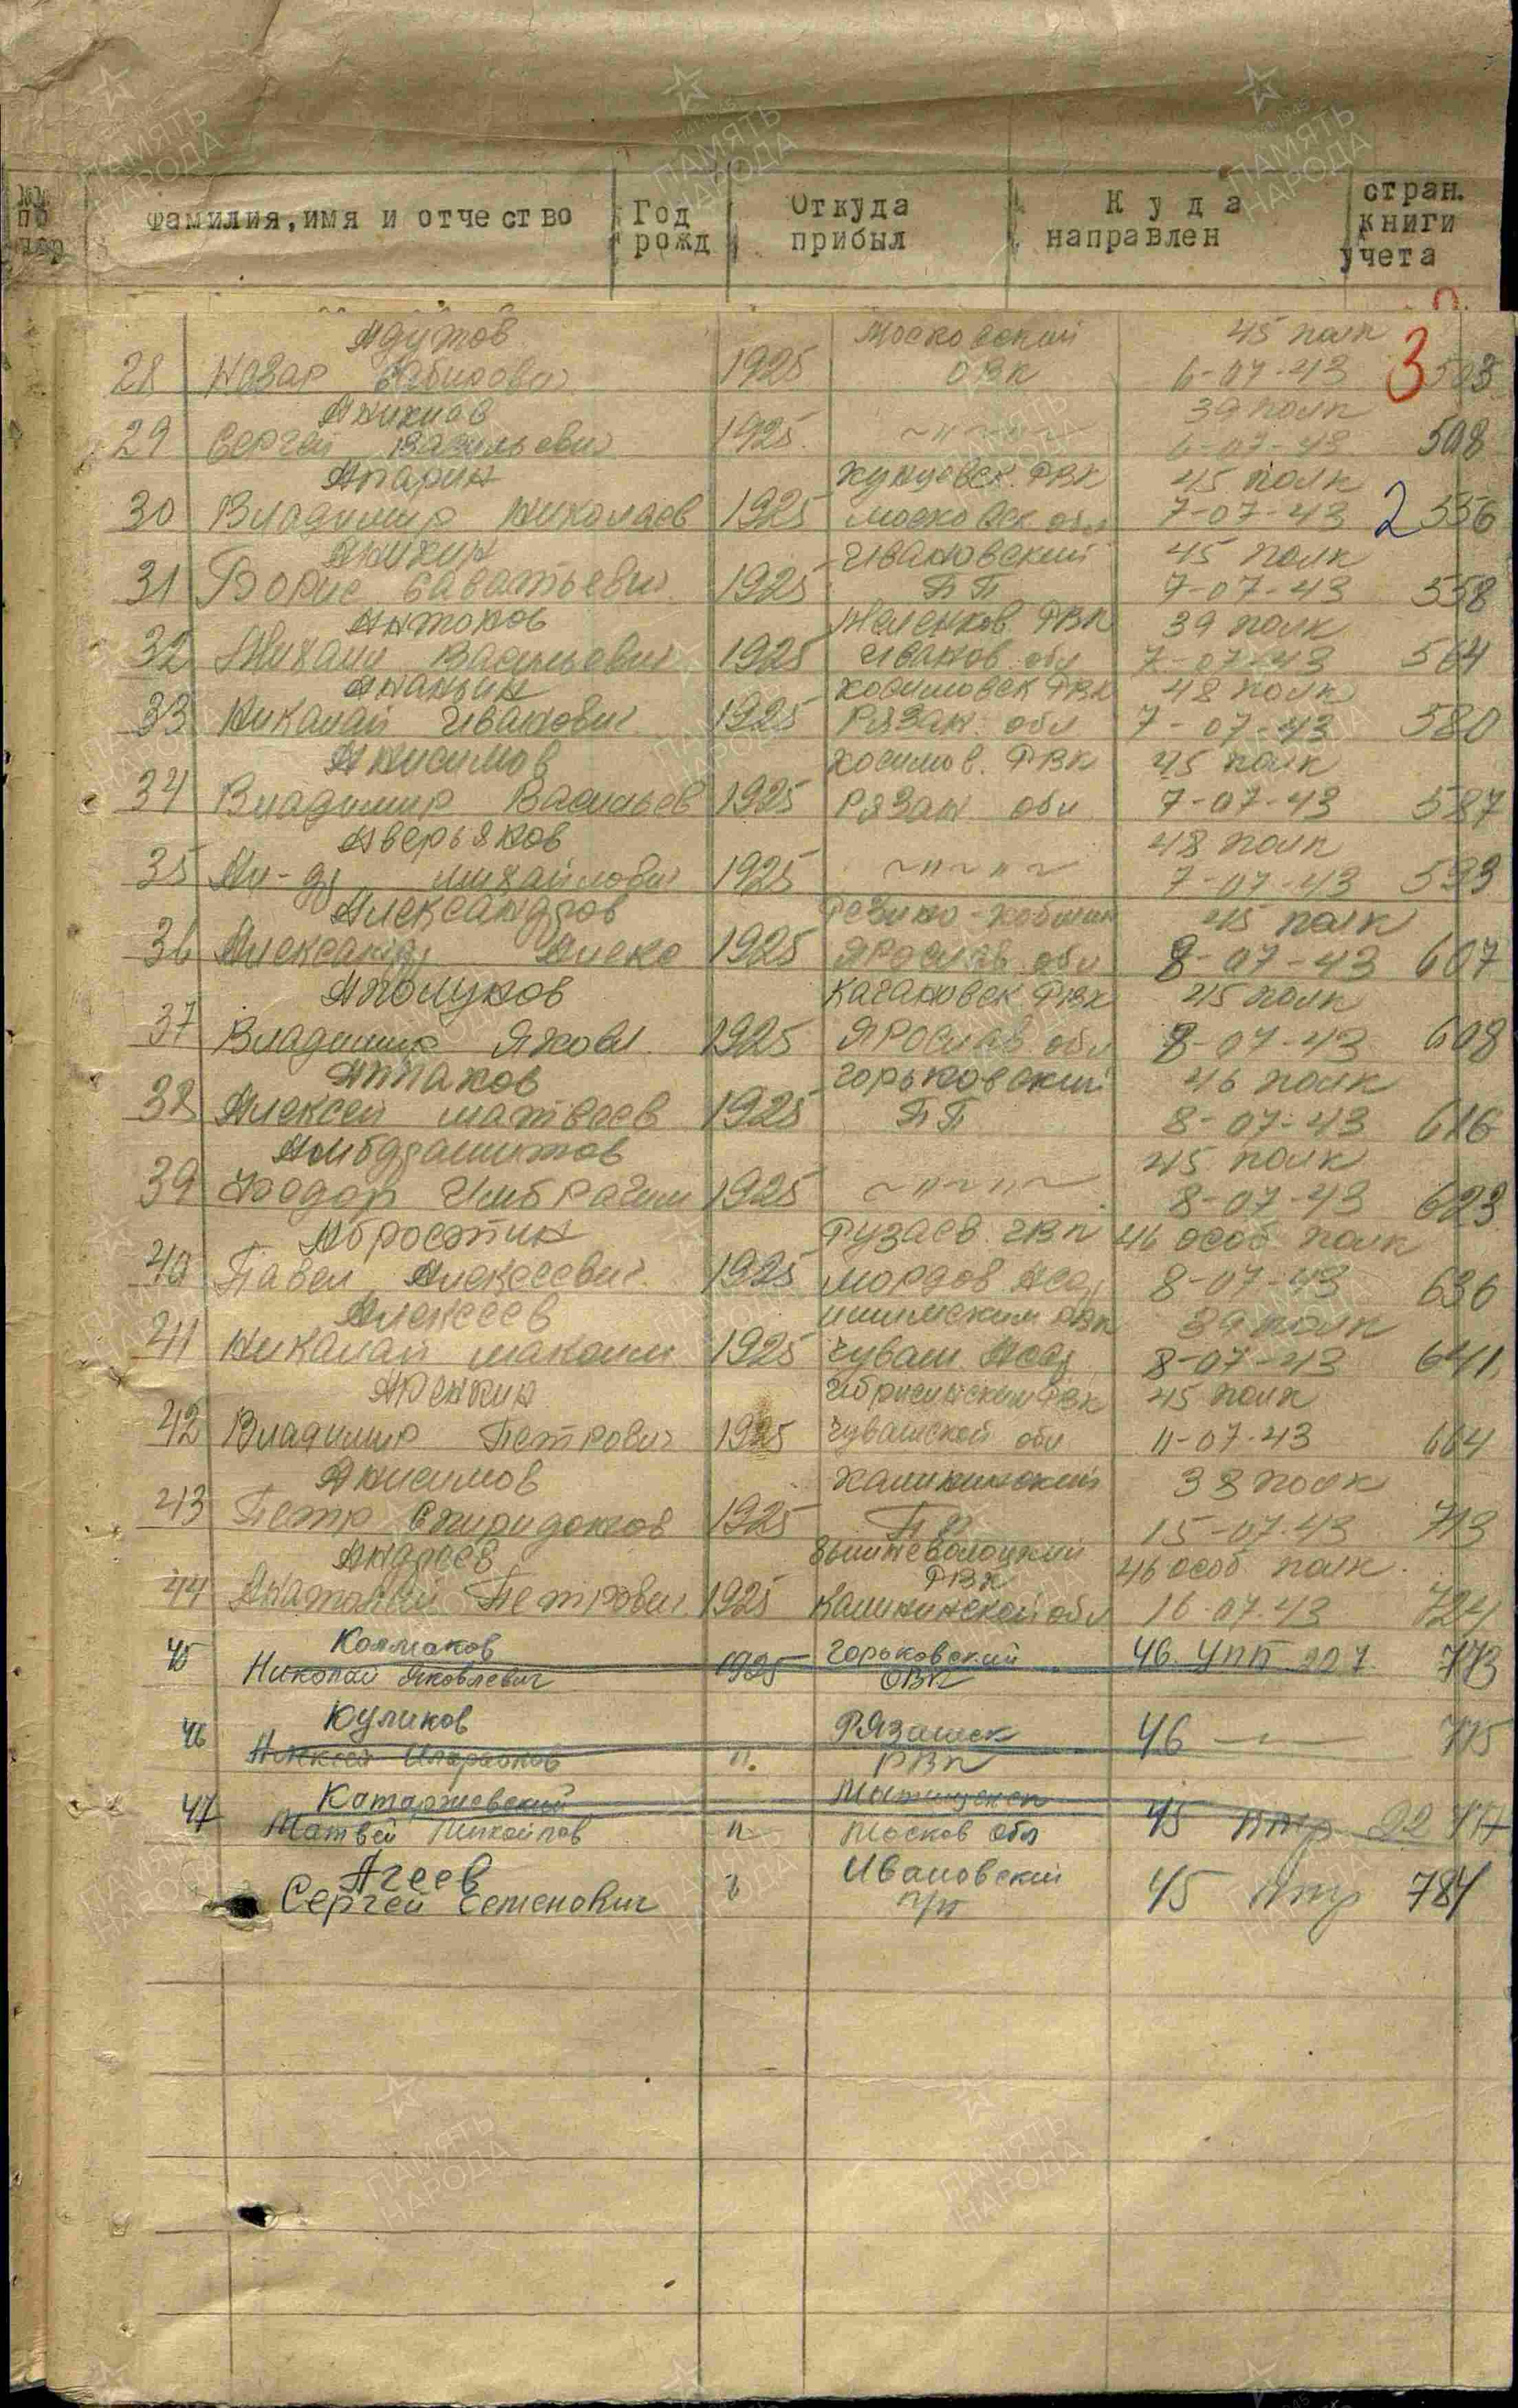 №№ по пор
Фамилия, имя и отчество
Год рожд
Откуда прибыл
Куда направлен
стран. книги учета
Адутов Московский 45 полк 3
28 Назар 1925 ОВК 6-07-43 503
Аникиов 39 полк
29 Сергей Васильевич 1925 ~"~"~ 6-07-43 508
Апарин Кунцевск. РВК 45 полк
30 Владимир Николаев 1925 Московск обл 7-07-43 2 556
Аникин Ивановский 45 полк
31 Борис Саватьевич 1925 ПП 7-07-43 558
Антонов Меленков РВК 39 полк
32 Михаил Васильевич 1925 Иванов обл 7-07-43 564
Ананьин Косимовск РВК 48 полк
33 Николай Иванович 1925 Рязан. обл 7-07-43 580
Анисимов Косимов. РВК 45 полк
34 Владимир Васильев 1925 Рязан обл 7-07-43 587
Аверьянов 48 полк
35 Ал-др Михайлович 1925 ~"~"~ 7-07-43 593
Александров Резино-комбин 45 полк
36 Александр Алекс 1925 Ярослав обл 8-07-43 607
Аполунов Кагановск РВК 45 полк
37 Владимир Яковл 1925 Ярослав обл 8-07-43 608
Аппаков Горьковский 46 полк
38 Алексей Матвеев 1925 ПП 8-07-43 616
45 полк
39 Имбрагим 1925 ~"~"~ 8-07-43 623
Аброськин Рузаев. РВК 46 особ полк
40 Павел Алексеевич 1925 Мордов Асср 8-07-43 636
Алексеев РВК 39 полк
41 Николай Максим 1925 Чуваш Асср 8-07-43 641
Аренкин Ибресинский РВК 45 полк
42 Владимир Петрович 1925 Чувашской обл 11-07-43 664
Анисимов Калининский 38 полк
43 Петр Спиридонов 1925 ПП 15-07-43 713
Андреев Вышневолоцкий РВК 46 особ полк
44 Анатолий Петрович 1925 Калининской обл 16-07-43 724
45 Колмаков Горьковский 46 УПП 773
Николай Яковлевич 1925 ОВК
46 Куликов Рязанск 46 — 775
Алексей Иларионов ". РВК
47 Катаржевский Мытищенск 45 птр 22 777
Матвей Михайлов " Москов обл
Агеев Ивановский 45 птр 784
Сергей Семенович п/п
ПАМЯТЬ НАРОДА